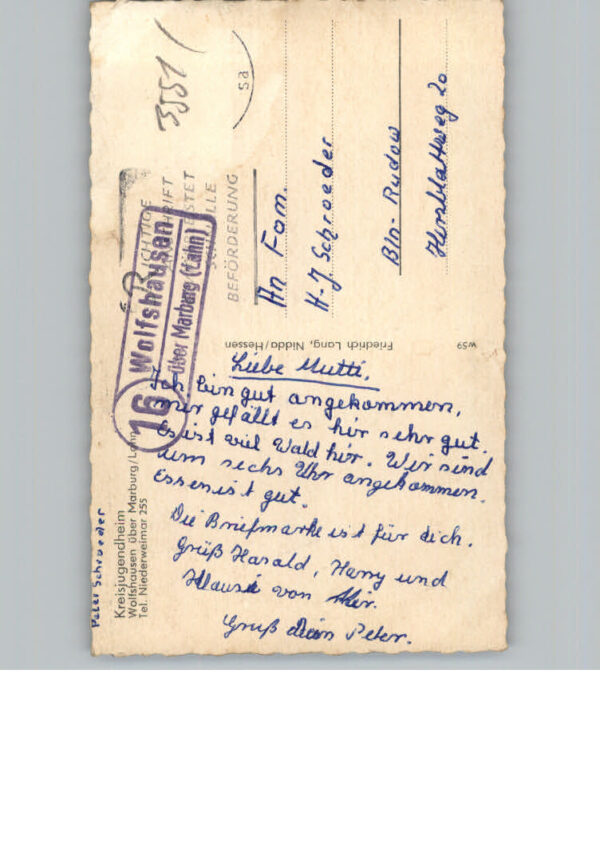 Peter Schroeder
Kreisjugendheim
Wolfshausen über Marburg/Lahn
Tel. Niederweimar 255
16
Wolfshausen
über Marburg (Lahn)
Liebe Mutti.
Ich bin gut angekommen,
mir gefällt es hir sehr gut.
Es ist viel Wald hir. Wir sind
um sechs Uhr angekommen.
Essen ist gut.
Die Briefmarke ist für dich.
Grüß Harald, Harry und
Klausi von Mir.
Gruß Dein Peter.
Friedrich Lang, Nidda/Hessen
W59
3551/
sa
BEFÖRDERUNG
An Fam.
H-J. Schroeder
Bln- Rudow
20